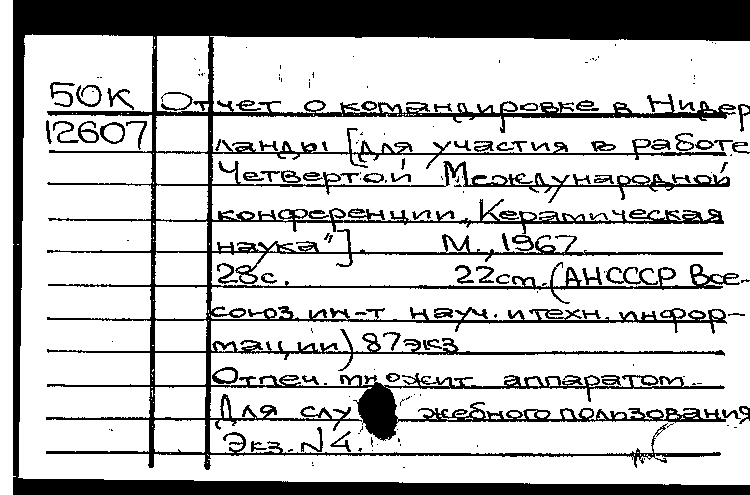 50К Отчет о командировке в Нидер
12607 ланды [для участия в работе
Четвертой Международной
конференции „Керамическая
наука"]. М., 1967
28с. 22cm. (АНСССР. Все-
союз. ин-т. науч. и техн. инфор-
мации) 87экз
Отпеч. множит аппаратом.
Для служебного пользования
Экз. N4.